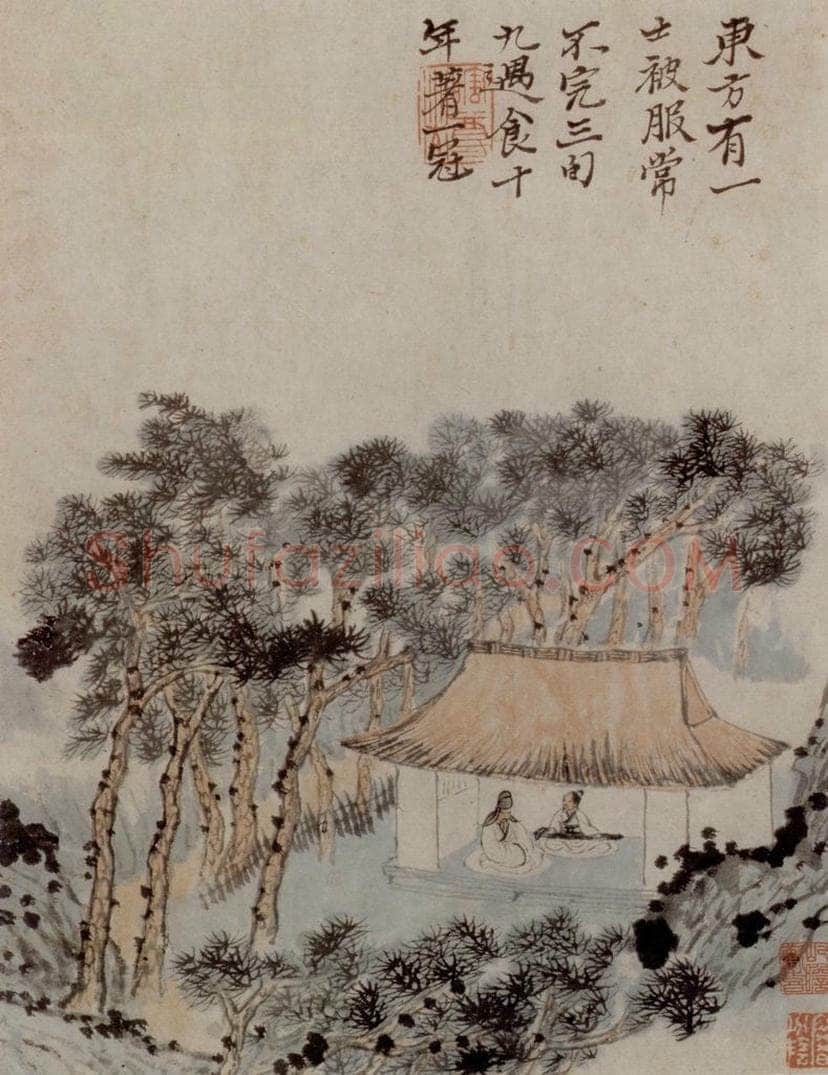 東方有一
士被服常
不完三旬
九遇食十
年著一冠
Shufaziliao.COM